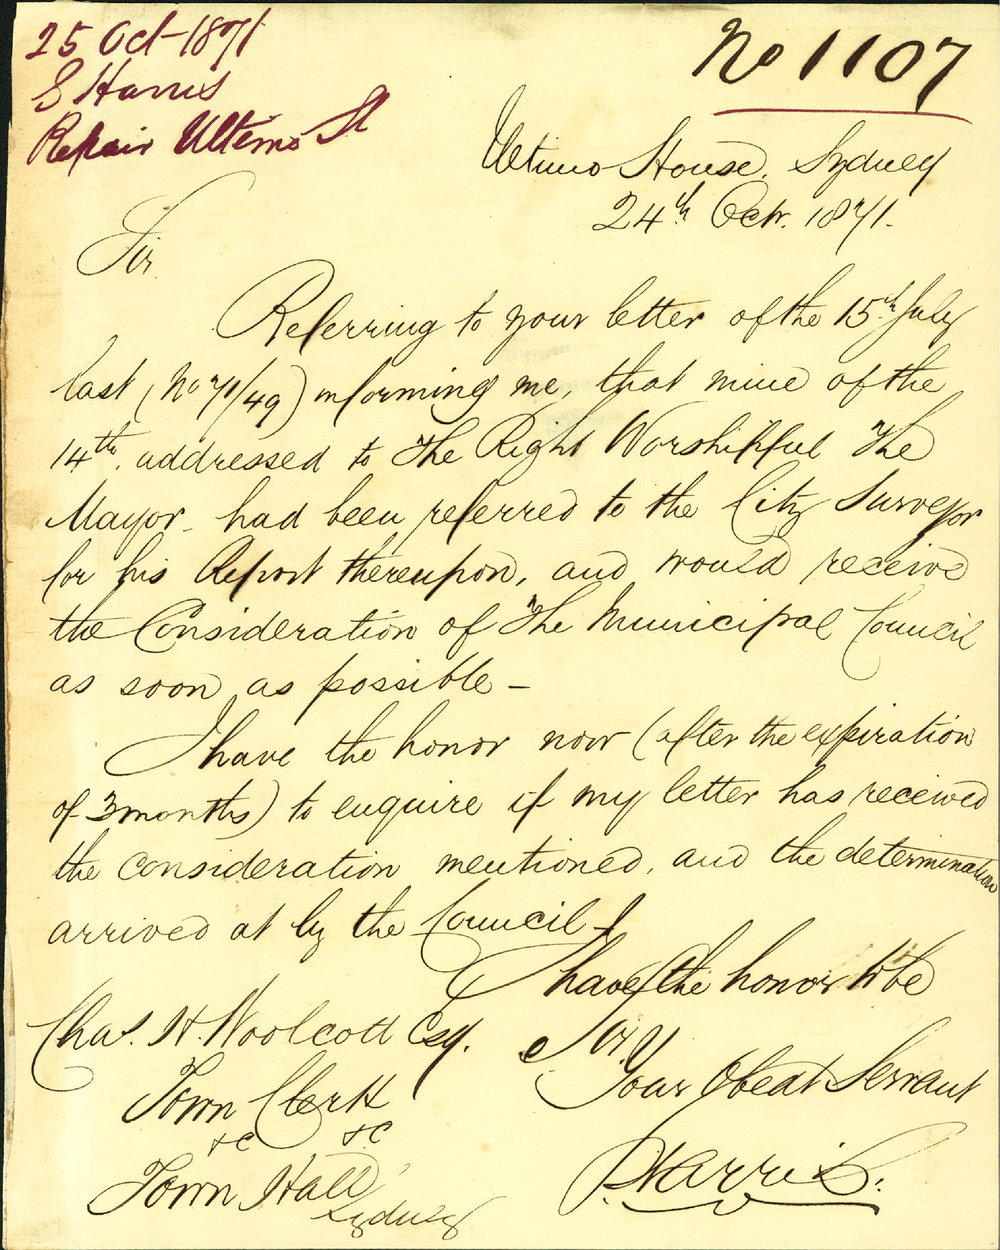 25 Oct - 1871
S Harris
Repair Ultimo St
No 1107
Ultimo House, Sydney
24th Octr. 1871.
Sir
Referring to your letter of the 15th July
last (No 71/49) informing me, that mine of the
14th, addressed to The Right Worshipful The
Mayor had been referred to the City Surveyor
for his Report thereupon, and would receive
the Consideration of The Municipal Council
as soon as possible –
I have the honor now (after the expiration
of 3 months) to enquire if my letter has received
the consideration mentioned, and the determination
arrived at by the Council –
I have the honor to be
Sir
Your Obedt Servant
Harris.
Chas. H. Woolcott Esq.
Town Clerk
&c &c
Town Hall
Sydney